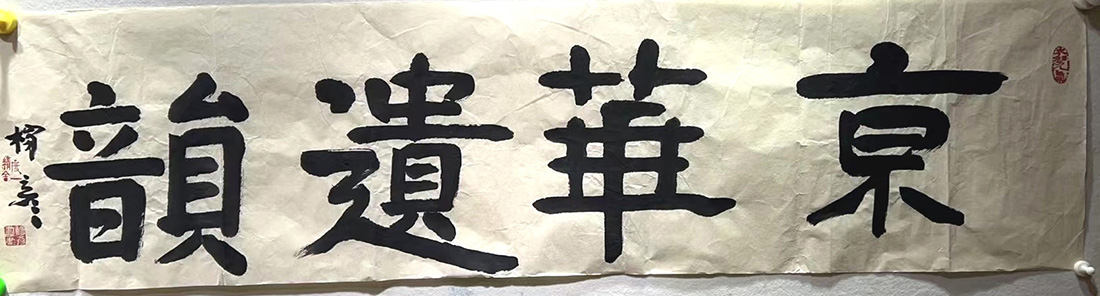 京華遺韻